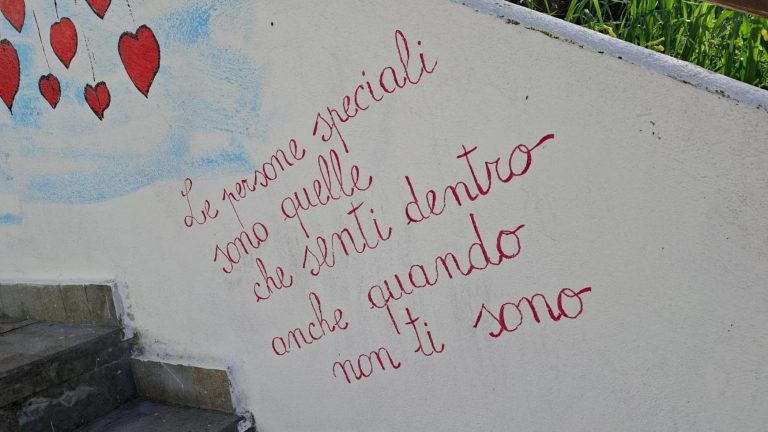 Le persone speciali
sono quelle
che senti dentro
anche quando
non ti sono